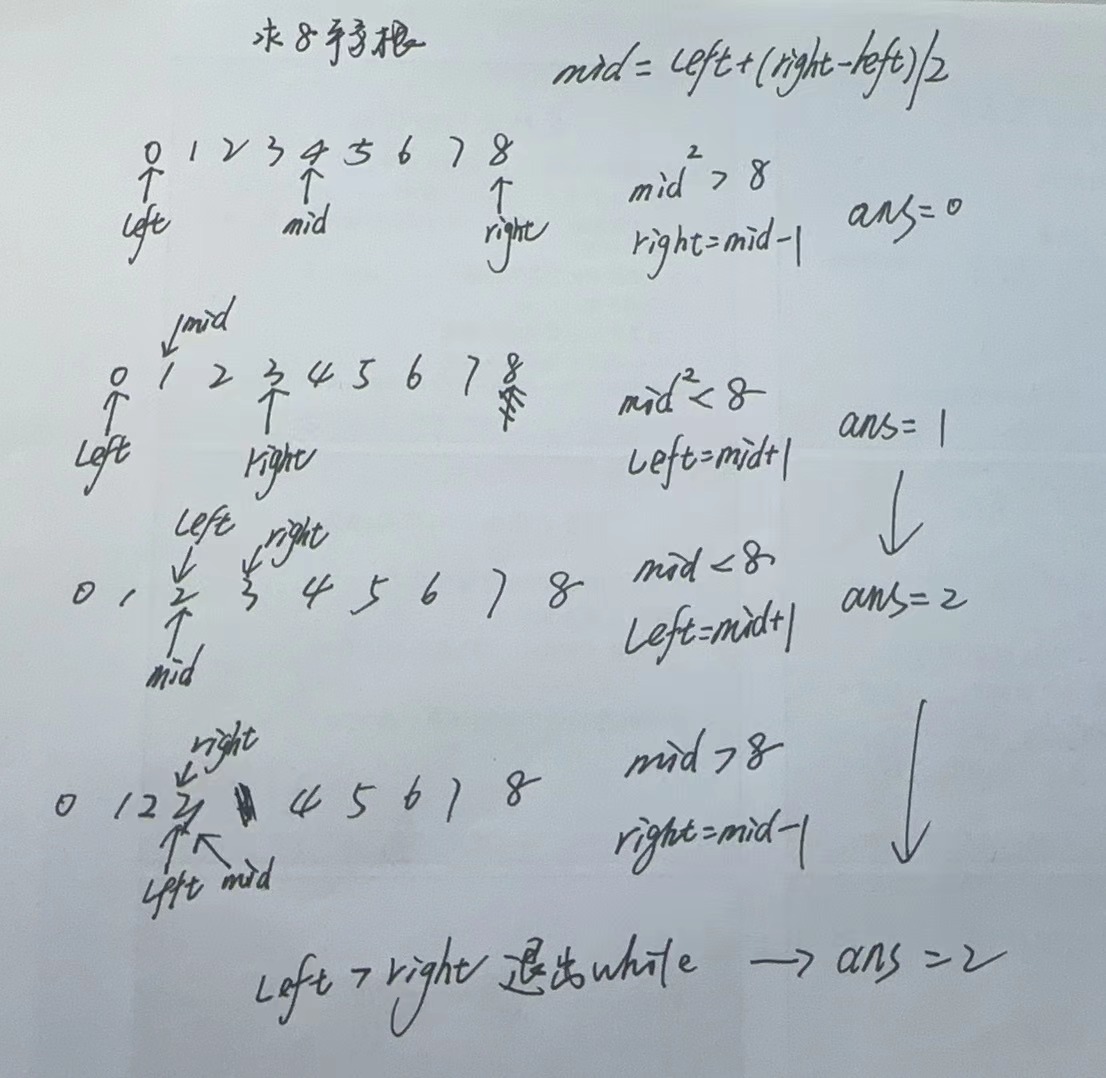 求8平方根
mid = left+(right-left)/2
0 1 2 3 4 5 6 7 8
left mid right
mid² > 8
right=mid-1
ans=0
mid
0 1 2 3 4 5 6 7 8
left right
mid² < 8
left=mid+1
ans=1
left right
0 1 2 3 4 5 6 7 8
mid
mid < 8
left=mid+1
ans=2
right
0 1 2 3 4 5 6 7 8
left mid
mid > 8
right=mid-1
left > right 退出while → ans=2